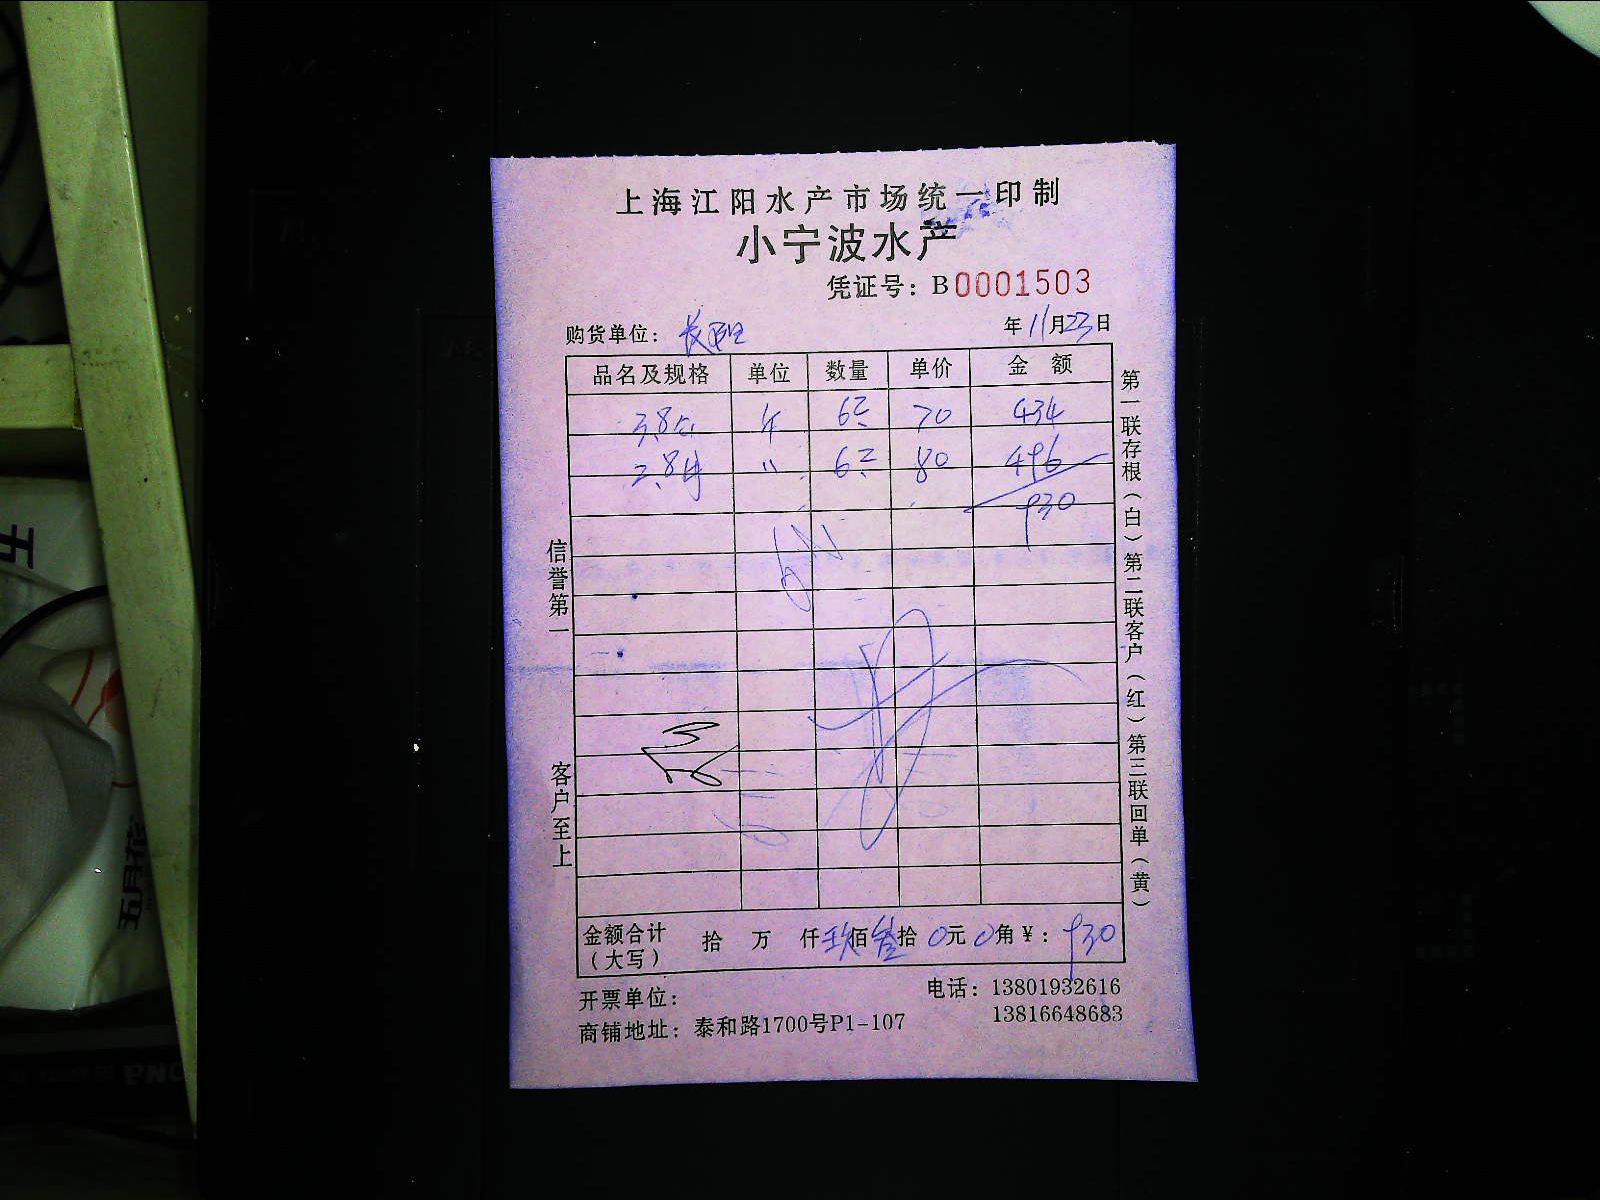 上海江阳水产市场统一印制
小宁波水产
凭证号：B0001503
购货单位：
年11月23日
品名及规格 单位 数量 单价 金额
3.8 斤 6.2 70 434
2.8 〃 6.2 80 496
930
信誉第一
客户至上
第一联存根（白）第二联客户（红）第三联回单（黄）
金额合计（大写） 拾 万 仟玖佰叁拾0元0角¥：930
开票单位：
电话：13801932616
13816648683
商铺地址：泰和路1700号P1-107
五
五月花